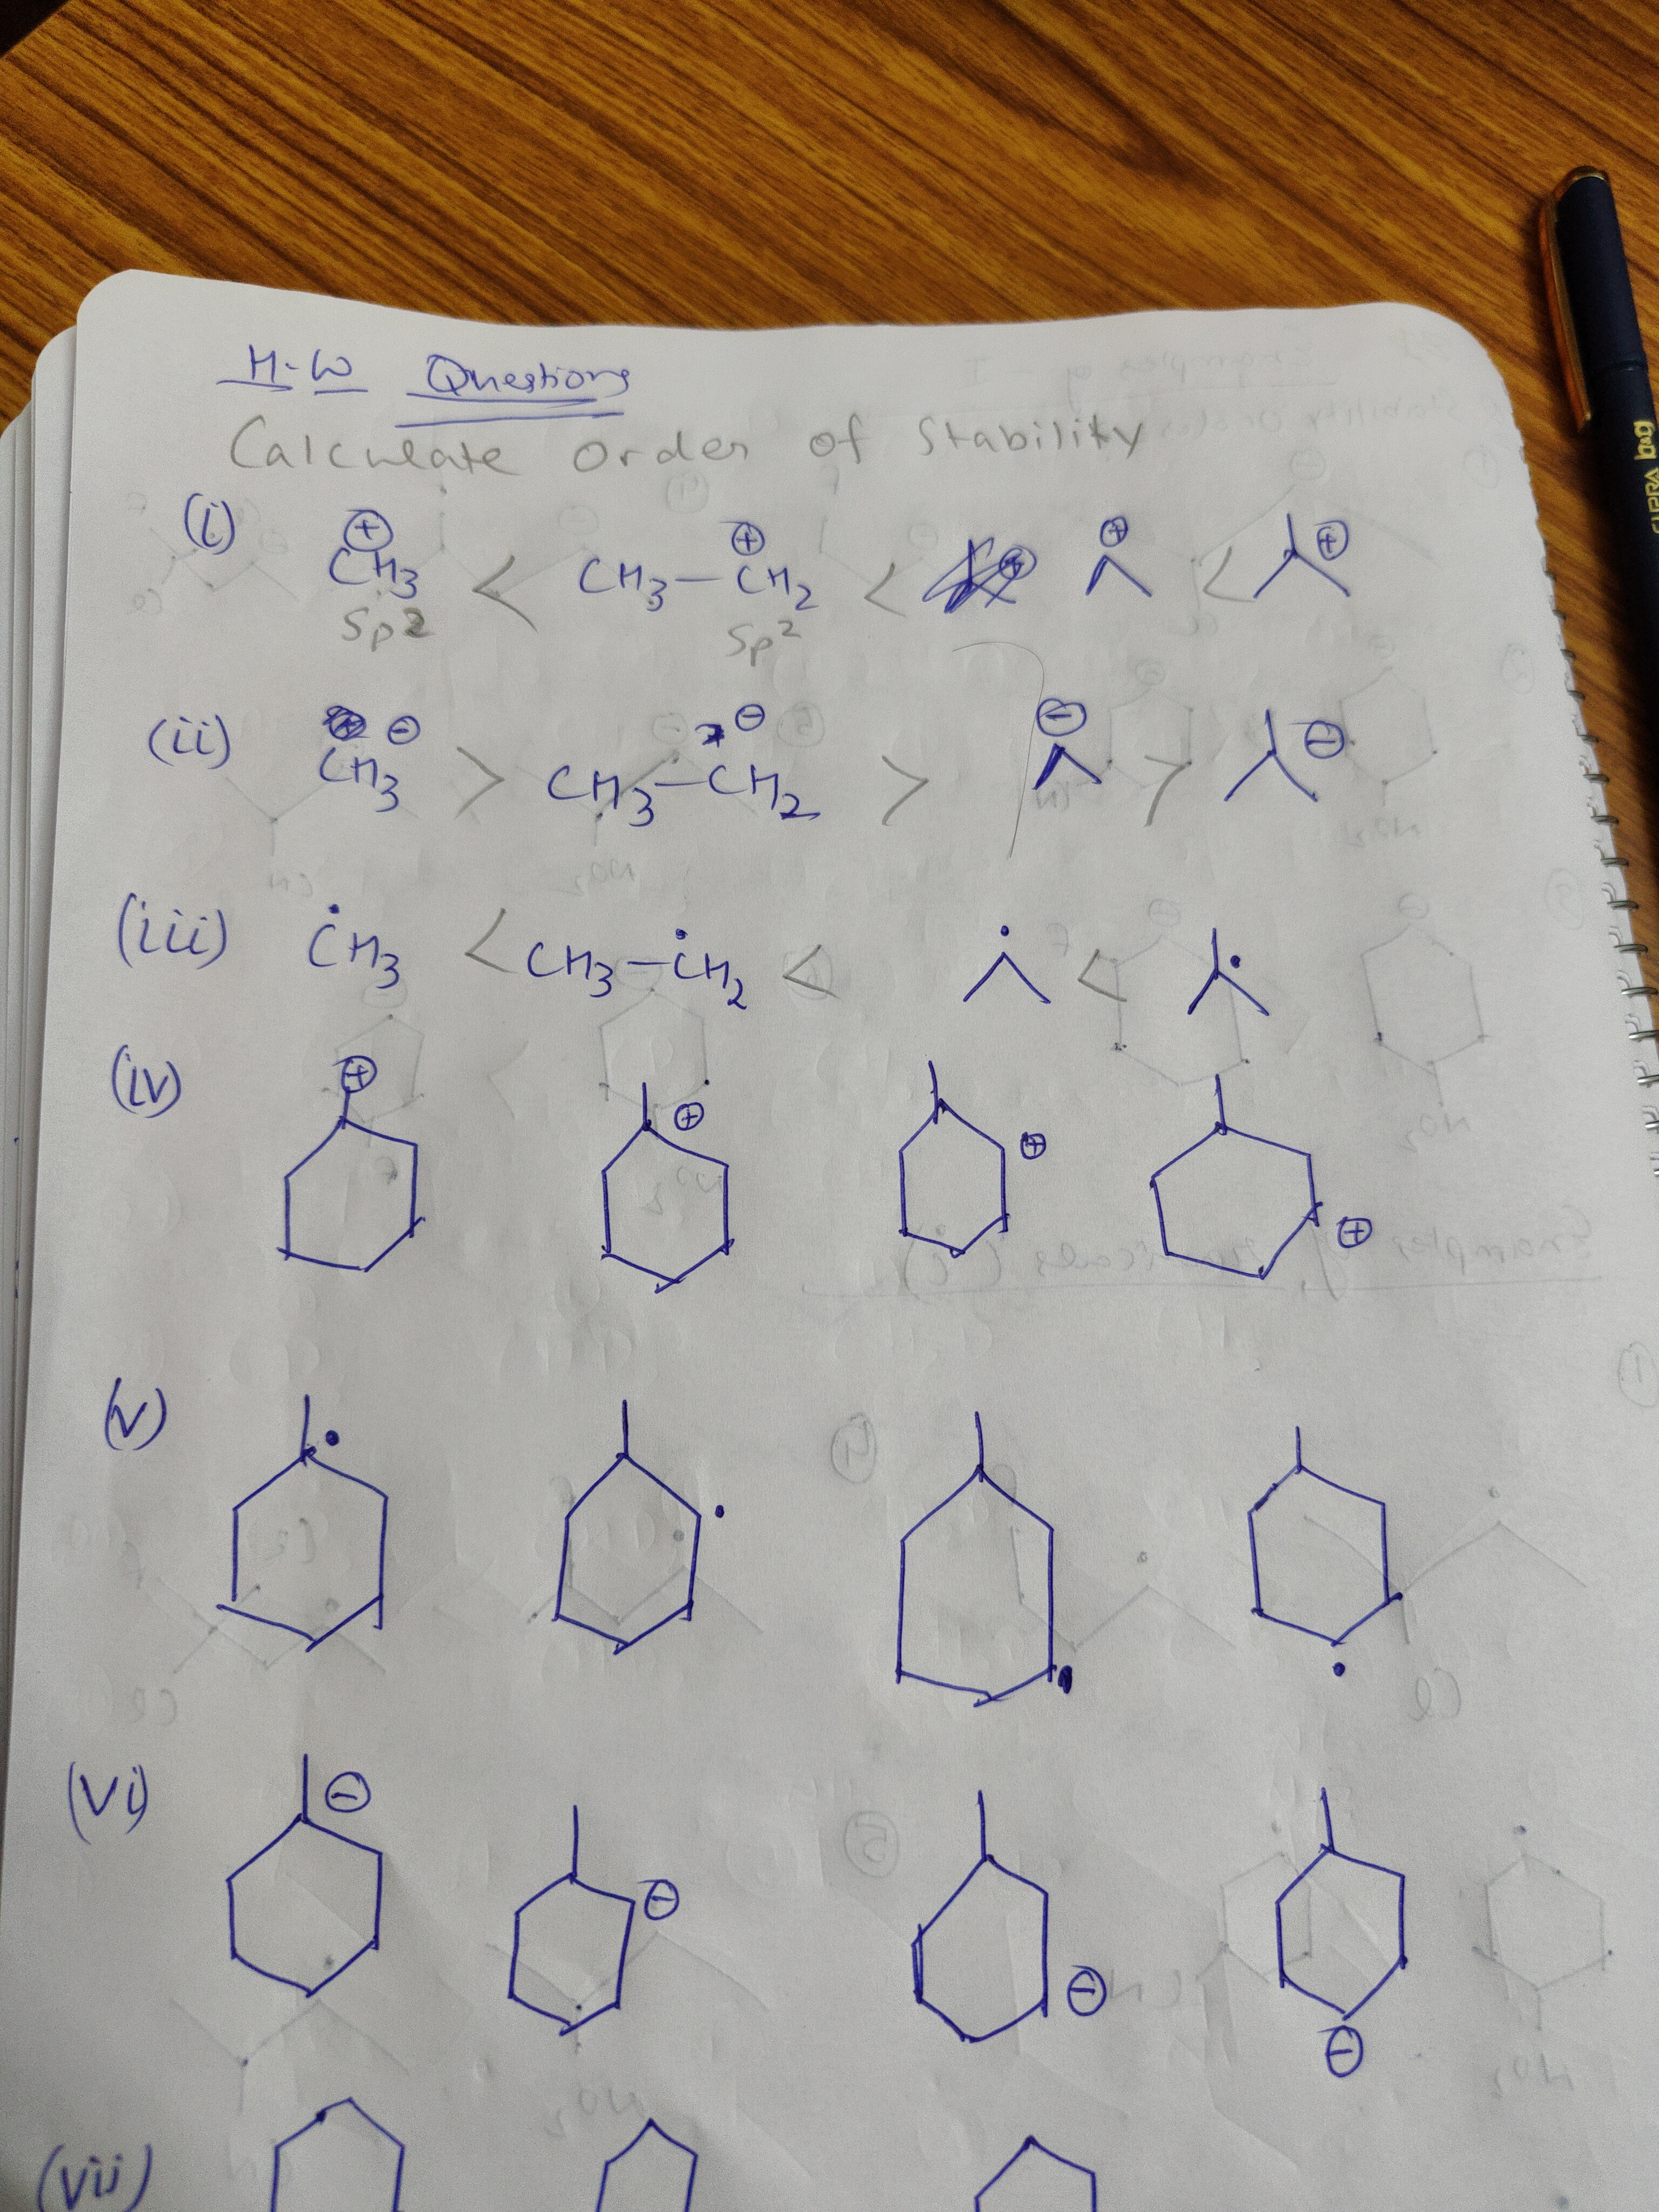 H.W Questions
Calculate Order of Stability
(i) ⊕CH3 < CH3-⊕CH2 < ⊕ < ⊕
Sp2 Sp2
(ii) ⊖CH3 > CH3-⊖CH2 > ⊖ > ⊖
(iii) •CH3 < CH3-•CH2 < • < •
(iv) ⊕ ⊕ ⊕ ⊕
(v) • • • •
(vi) ⊖ ⊖ ⊖ ⊖
(vii)
bag